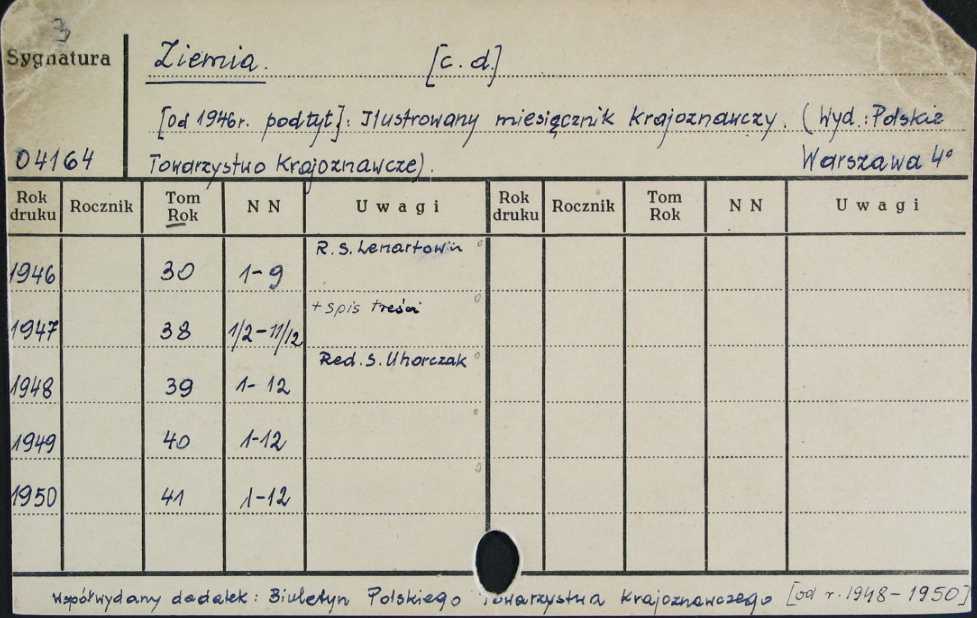 3
Sygnatura
Ziemia. [c. d.]
[od 1946r. podtyt]: Ilustrowany miesięcznik krajoznawczy. (Wyd.: Polskie
04164 Towarzystwo Krajoznawcze). Warszawa 4°
Rok druku Rocznik Tom Rok N N Uwagi Rok druku Rocznik Tom Rok N N Uwagi
R. S. Lenartowicz
1946 30 1-9
+ spis treści
1947 38 1/2-11/12
Red. S. Uhorczak
1948 39 1-12
1949 40 1-12
1950 41 1-12
współwydany dodatek: Biuletyn Polskiego Towarzystwa Krajoznawczego [od r. 1948-1950]